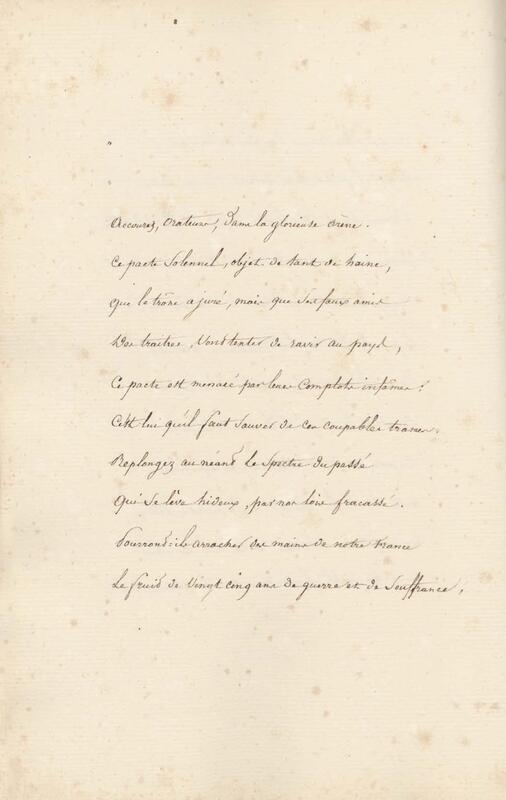 Accourez, orateurs, dans la glorieuse arène.
Ce pacte Solennel, objet de tant de haine,
Que le trône a juré, mais que Ses faux amis
Des traîtres, Vont tenter de ravir au pays,
Ce pacte est menacé par leurs complots infâmes!
C'est lui qu'il faut Sauver de ces coupables trames.
Replongez au néant le Spectre du passé
Qui Se lève hideux, par nos lois fracassé.
Pourront-ils arracher des mains de notre France
Le fruit de Vingt cinq ans de guerre et de Souffrance,